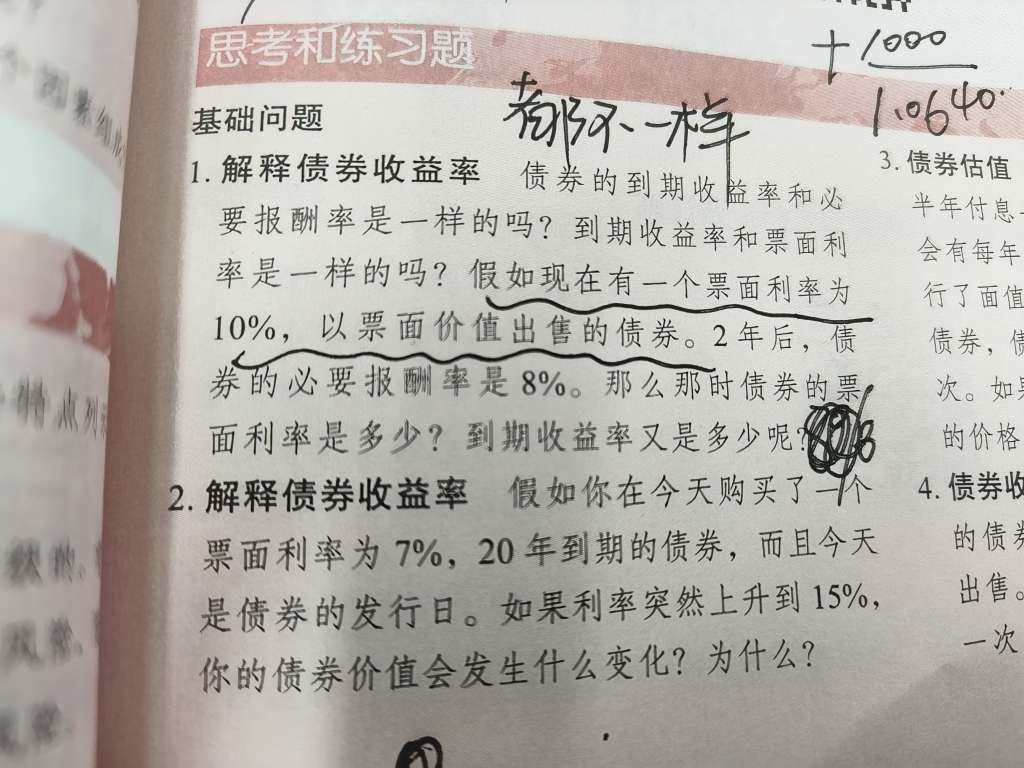 +1000
1.0640.
思考和练习题
都不一样
基础问题
1. 解释债券收益率 债券的到期收益率和必
要报酬率是一样的吗？到期收益率和票面利
率是一样的吗？假如现在有一个票面利率为
10%，以票面价值出售的债券。2年后，债
券的必要报酬率是8%。那么那时债券的票
面利率是多少？到期收益率又是多少呢？
2. 解释债券收益率 假如你在今天购买了一个
票面利率为7%，20年到期的债券，而且今天
是债券的发行日。如果利率突然上升到15%，
你的债券价值会发生什么变化？为什么？
①
3. 债券估值
半年付息
会有每年
行了面值
债券，债
次。如果
的价格
4. 债券收
的债券
出售。
一次
个因素
特点列